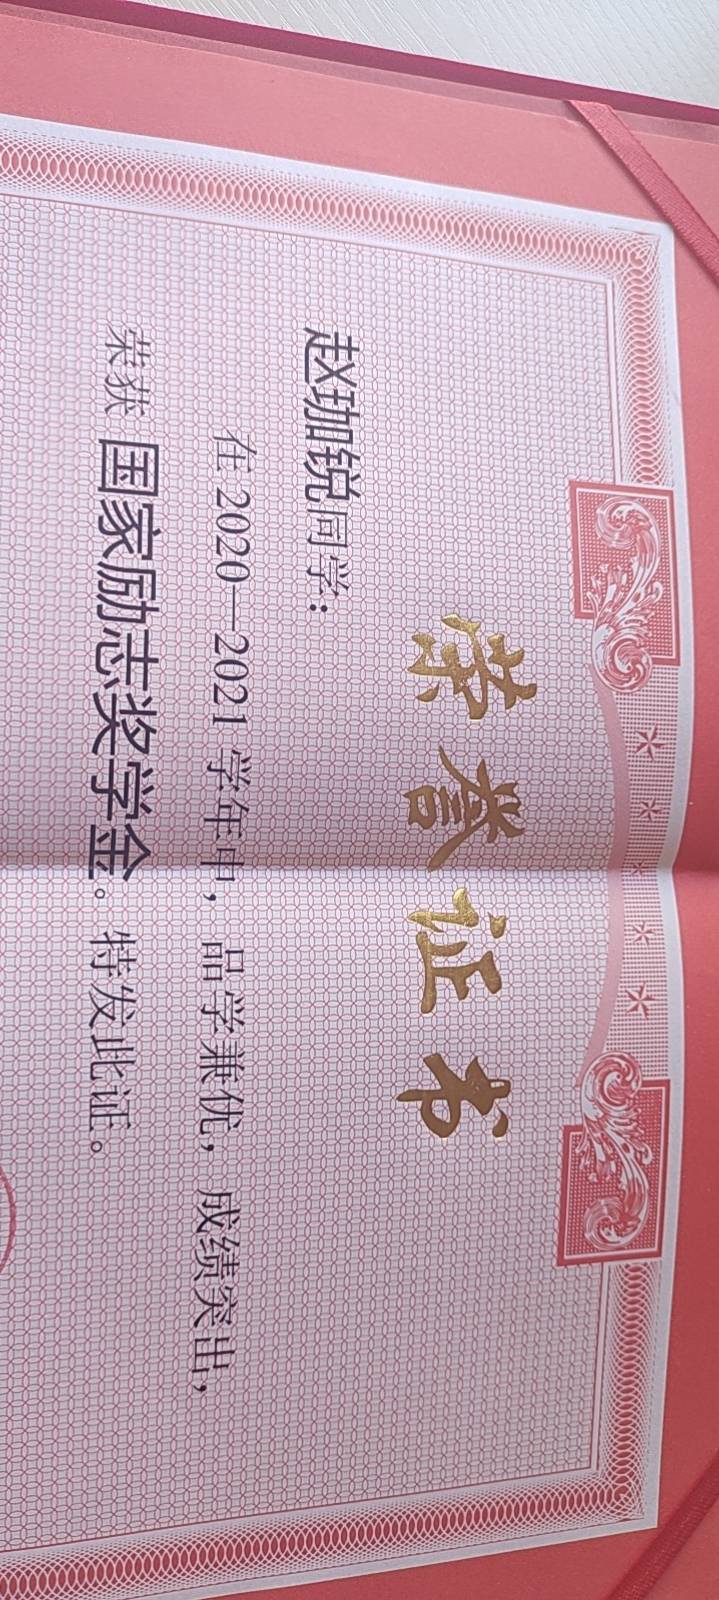 荣誉证书
赵珈锐同学：
在 2020—2021 学年中，品学兼优，成绩突出，
荣获 国家励志奖学金。特发此证。